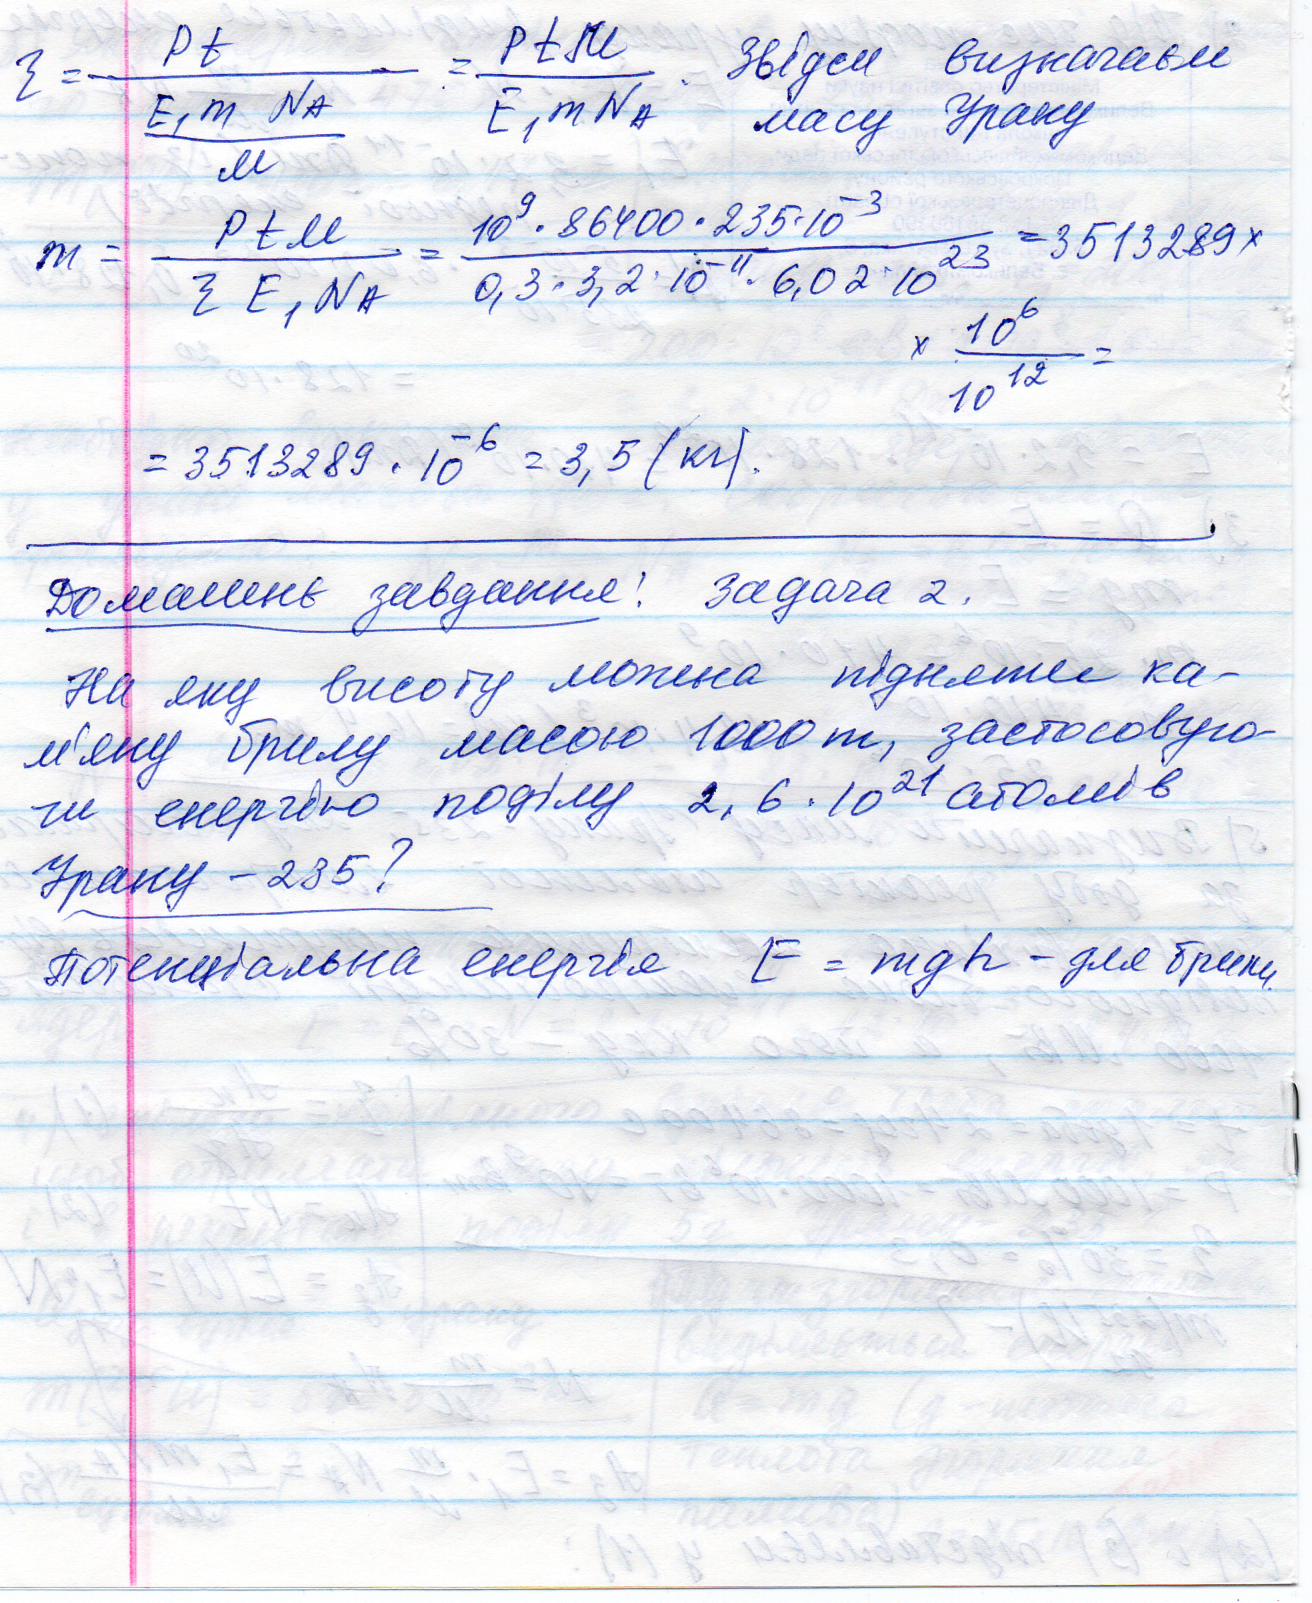 η = Pt / (E₁ m N_A / M) = PtM / (E₁ m N_A). Звідси визначаєм
масу Урану
m = PtM / (η E₁ N_A) = 10⁹ · 86400 · 235·10⁻³ / (0,3 · 3,2 · 10⁻¹¹ · 6,02 · 10²³) = 3513289 ×
× 10⁶ / 10¹² =
= 3513289 · 10⁻⁶ = 3,5 (кг).
Домашнє завдання! Задача 2.
На яку висоту можна підняти ка-
м'яну брилу масою 1000 т, застосовую-
чи енергію поділу 2,6 · 10²¹ атомів
Урану – 235?
Потенціальна енергія E = mgh – для брили.